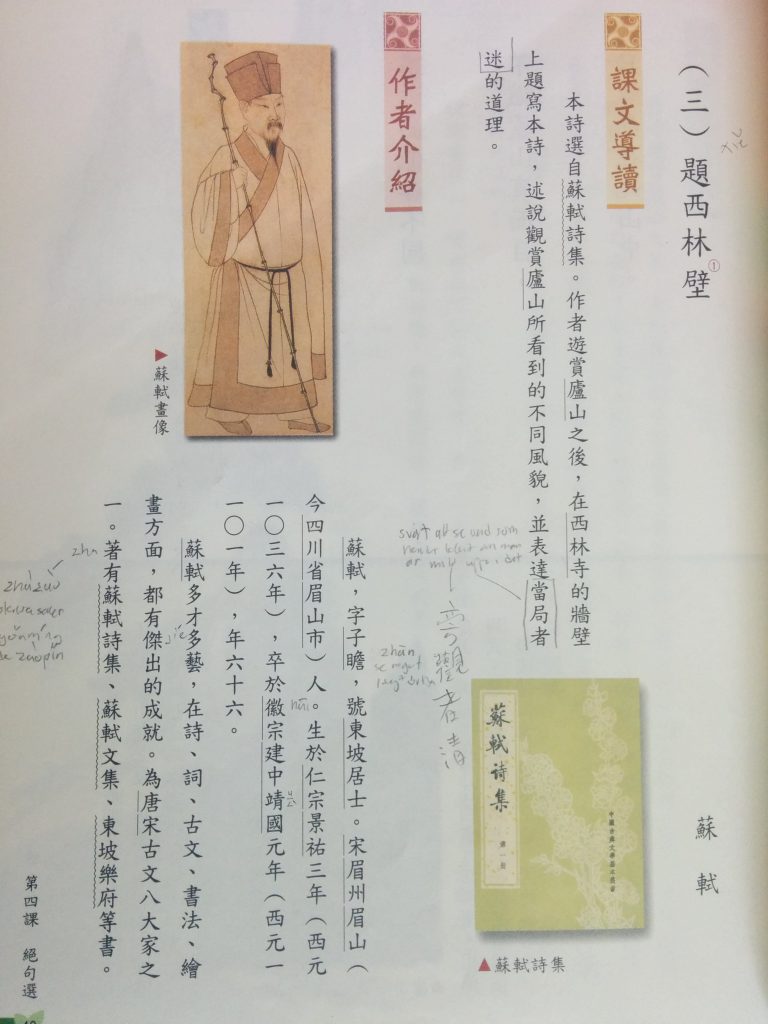 (三)題西林壁①
蘇軾
課文導讀
本詩選自蘇軾詩集。作者遊賞廬山之後，在西林寺的牆壁
上題寫本詩，述說觀賞廬山所看到的不同風貌，並表達當局者
迷的道理。
蘇軾詩集
第一冊
中國古典文學基本叢書
▲蘇軾詩集
作者介紹
▶蘇軾畫像
蘇軾，字子瞻，號東坡居士。宋眉州眉山（
今四川省眉山市）人。生於仁宗景祐三年（西元
一〇三六年），卒於徽宗建中靖國元年（西元一
一〇一年），年六十六。
蘇軾多才多藝，在詩、詞、古文、書法、繪
畫方面，都有傑出的成就。為唐宋古文八大家之
一。著有蘇軾詩集、蘇軾文集、東坡樂府等書。
觀者清
svårt att se und som
zhān
se
zhu
jié
zhù
第四課　絕句選